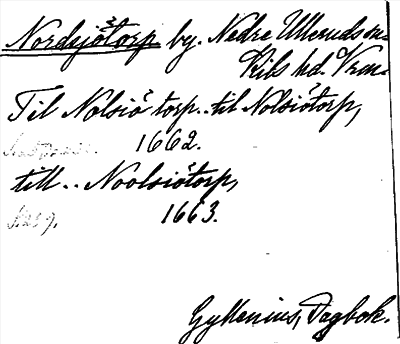 Nordsjötorp by. Nedre Ulleruds sn.
Kils hd. Vrm.
Til Nolsiö torp.. til Nolsiötorp,
1662.
till.. Noolsiötorp,
1663.
Gyllenius, Dagbok.